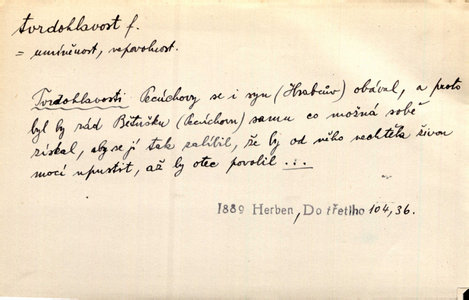 tvrdohlavost f.
= umíněnost, nepovolnost.
Tvrdohlavosti Pecúchovy se i syn (Hrabcův) obával, a proto
byl by rád Bětušku (Pecúchovu) samu co možná sobě
získal, aby se jí tak zalíbil, že by od něho nechtěla živou
mocí upustit, až by otec povolil ...
1889 Herben, Do třetího 104,36.